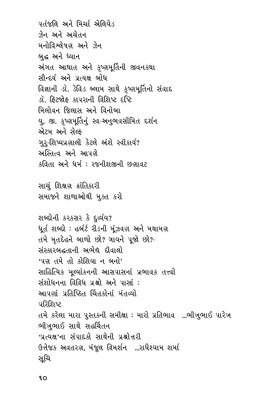 પતંજલિ અને મિર્ચા એલિયેડ
ઝેન અને અચેતન
મનોવિશ્લેષણ અને ઝેન
બુદ્ધ અને ધ્યાન
અંગત આઘાત અને કૃષ્ણમૂર્તિની જીવનકથા
સૌન્દર્ય અને પ્રત્યક્ષ બોધ
વિજ્ઞાની ડૉ. ડેવિડ બ્હામ સાથે કૃષ્ણમૂર્તિનો સંવાદ
ડૉ. ફ્રિટજોફ કાપરાની વિશિષ્ટ દૃષ્ટિ
મિલોવન જિલાસ અને વિનોબા
યુ. જી. કૃષ્ણમૂર્તિનું સ્વ-અનુભવસીમિત દર્શન
એટમ અને સેલ્ફ
ગુરુ-શિષ્યપ્રણાલી કેટલે અંશે સ્વીકાર્ય?
અસ્તિત્વ અને આપણે
કવિતા અને ધર્મ : રજનીશજીની છણાવટ
સાચું શિક્ષણ ક્રાંતિકારી
સમાજને શાળાઓથી મુક્ત કરો
શબ્દોની કરકસર કે દુર્વ્યય?
ધૂર્ત શબ્દો : હર્બર્ટ રીડની મૂંઝવણ અને મથામણ
તમે મૃતદેહને બાળો છો? ગાયને પૂજો છો?
સંસ્કારબદ્ધતાની અભેદ્ય દીવાલો
'પણ તમે તો કોશિયા ન બનો'
સાહિત્યિક મૂલ્યાંકનની આસપાસનાં પ્રભાવક તત્ત્વો
સંશોધનના વિવિધ પ્રશ્નો અને પાસાં :
આપણાં પ્રતિષ્ઠિત ચિંતકોનાં મંતવ્યો
પરિશિષ્ટ
તમે કરેલા મારા પુસ્તકની સમીક્ષા : મારો પ્રતિભાવ ...ભીખુભાઈ પારેખ
ભીખુભાઈ સાથે સહચિંતન
'પ્રત્યક્ષ'ના સંપાદકો સાથેની પ્રશ્નોત્તરી
ઉત્તેજક અવતરણ, મંજુલ વિમર્શન ...રાધેશ્યામ શર્મા
સૂચિ
૧૦